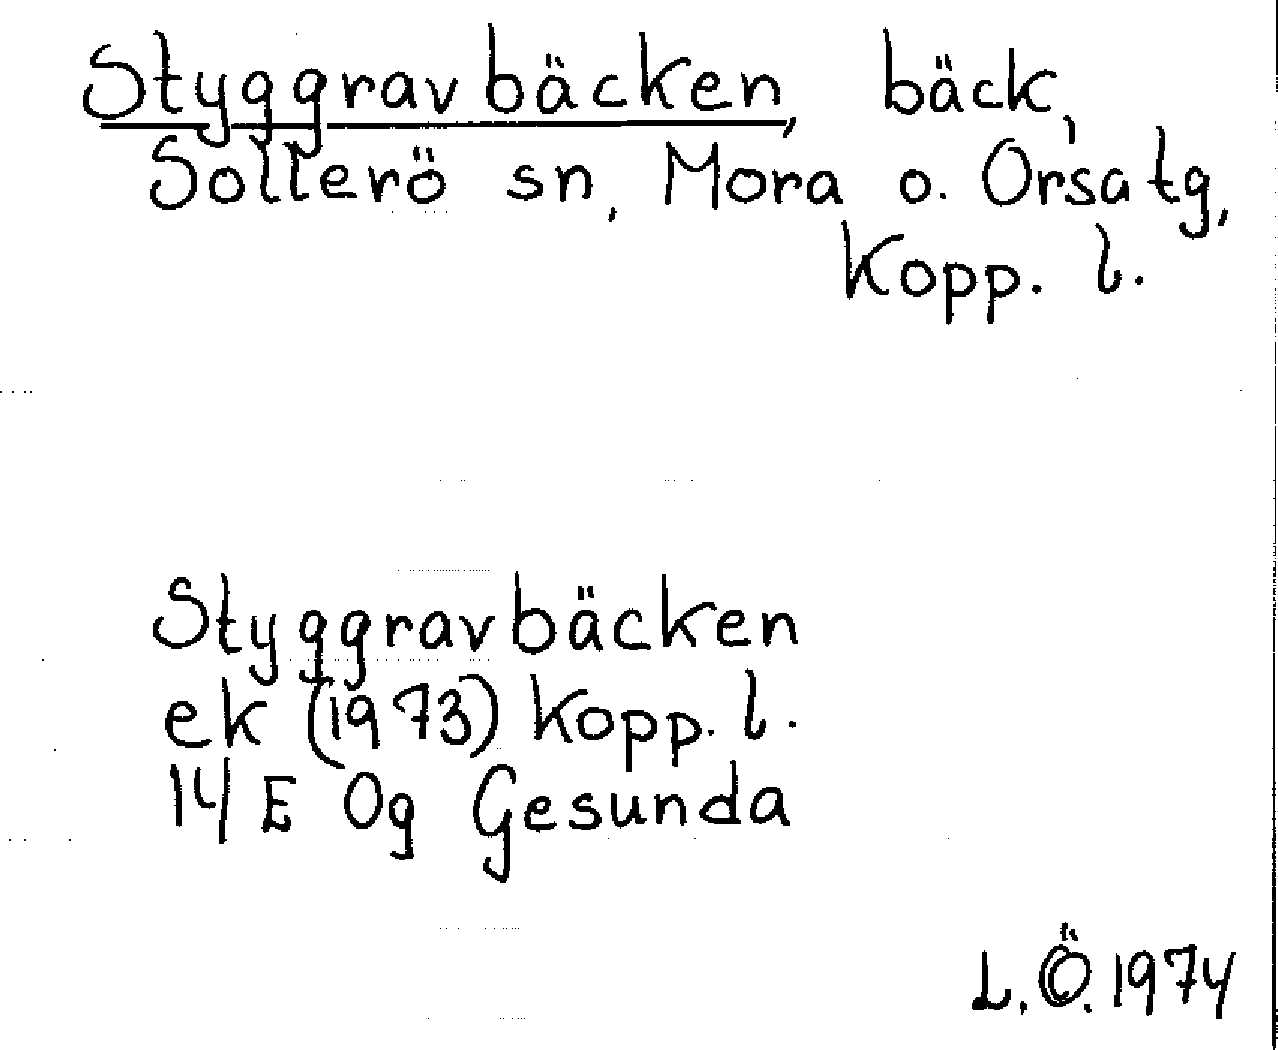 Styggravbäcken, bäck,
Sollerö sn, Mora o. Orsa tg,
Kopp. l.
Styggravbäcken
ek (1973) Kopp. l.
14 E 0g Gesunda
L.Ö. 1974